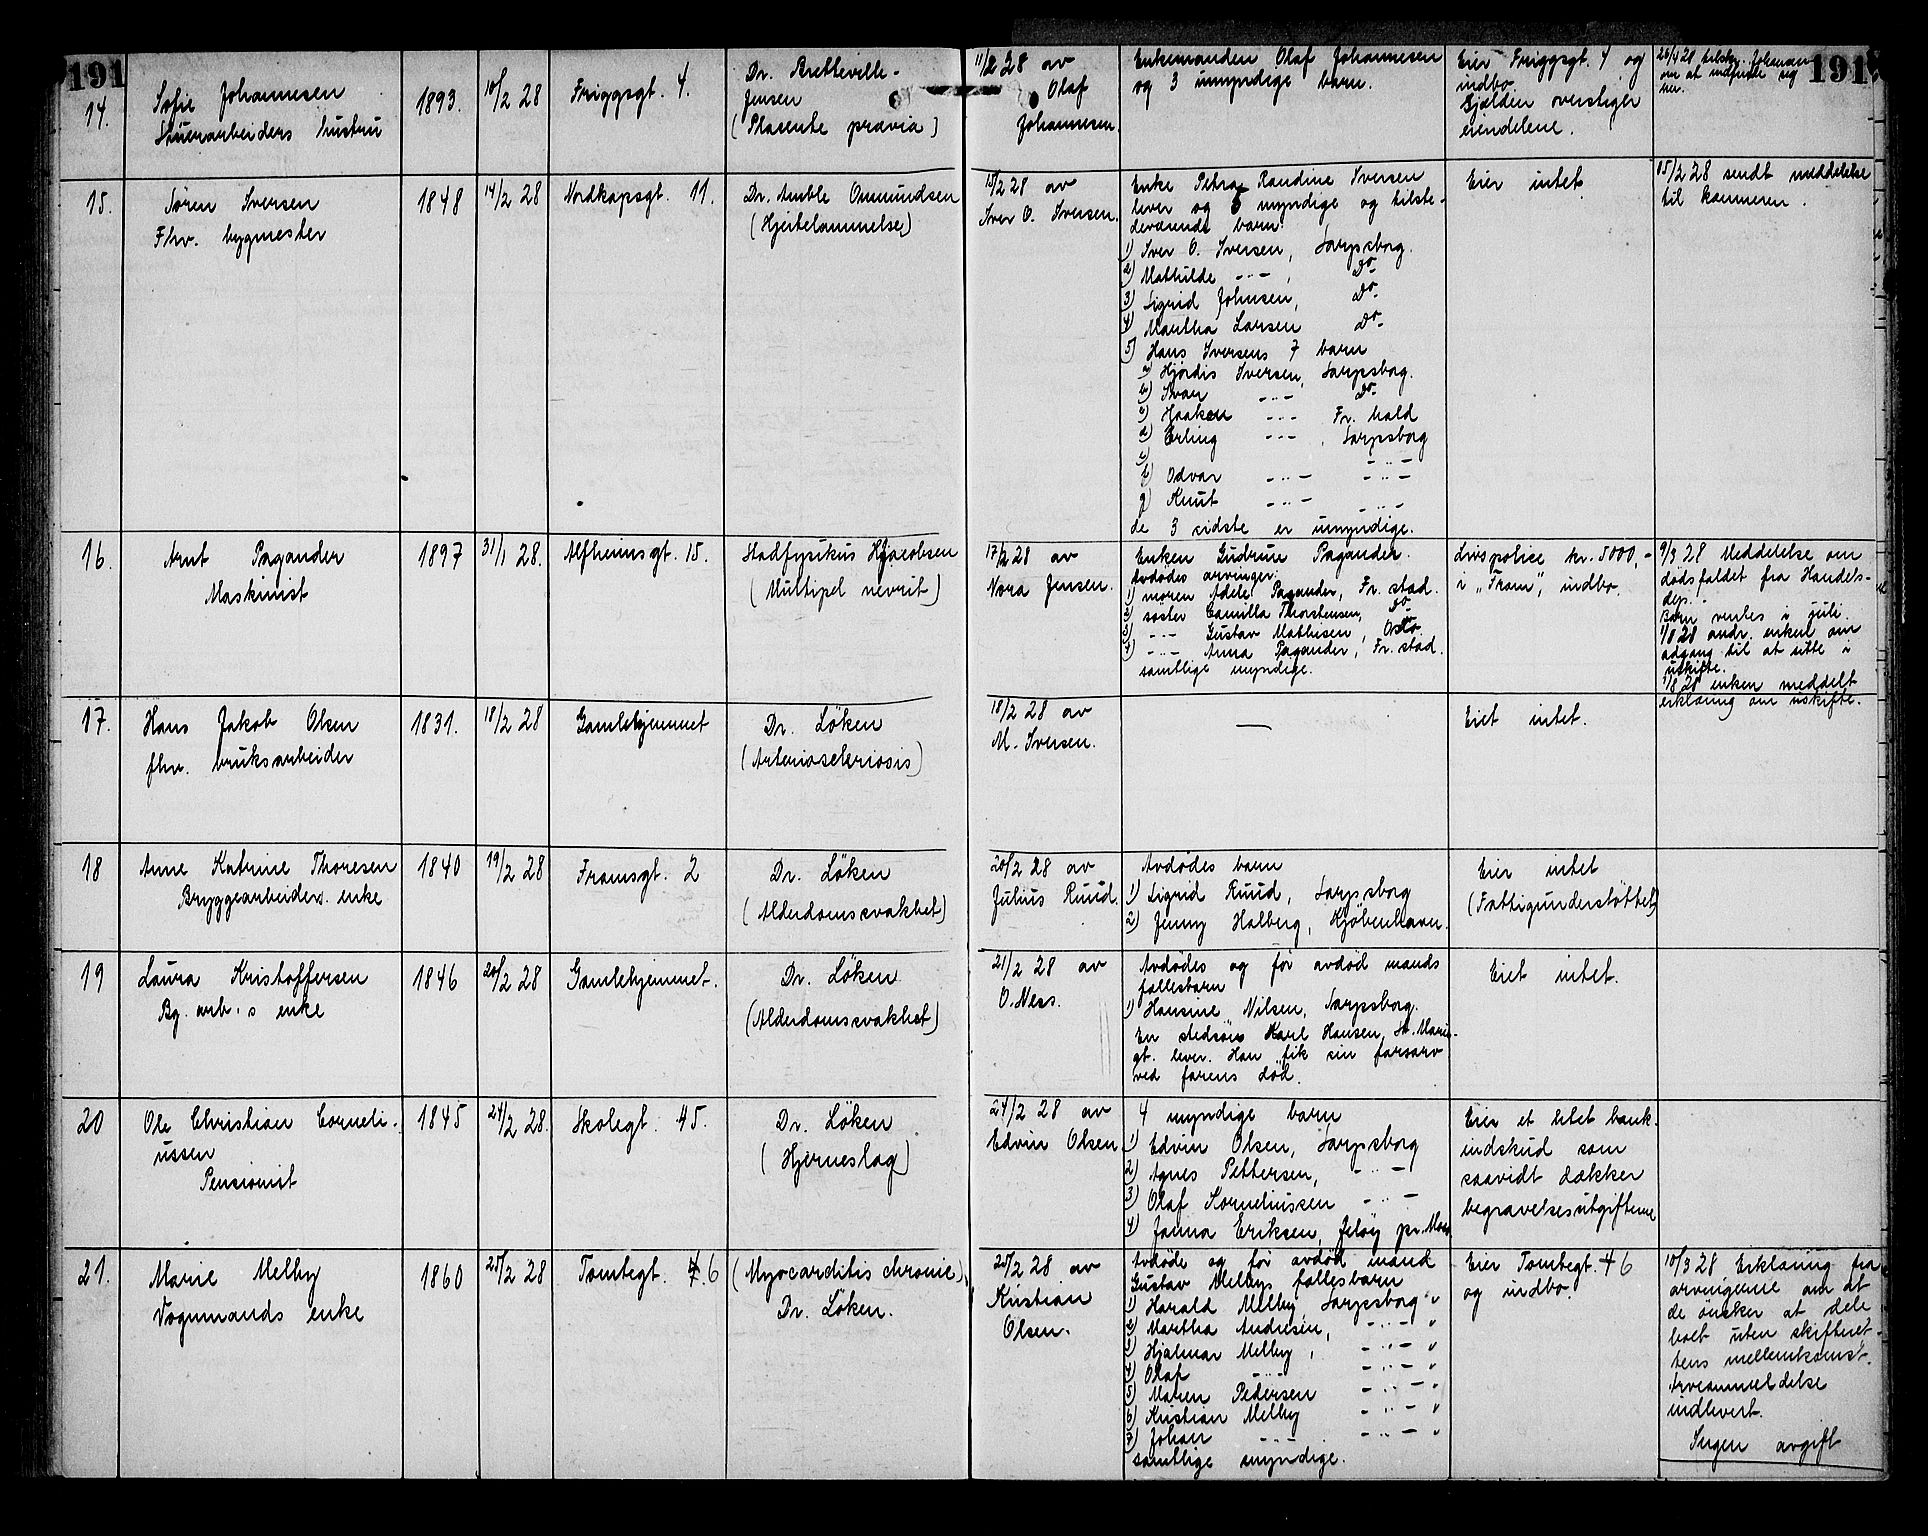 191
191
14.
Sofie Johannesen
Stuerarbeiders hustru
1893.
10/2 28
Friggsgt. 4.
Dr. Bretteville-
Jensen
(Plasente prævia)
11/2 28 av
Olaf
Johannesen.
Enkemanden Olaf Johannesen
og 3 umyndige barn.
Eier Friggsgt. 4 og
indbo.
Gjælden overstiger
eiendelene.
Johannesen
om at indfinde sig
her.
15.
Søren Iversen
Fhv. bygmester
1848
14/2 28
Nordkapsgt. 11.
Dr. Amble Ommundsen
(Hjertelammelse)
15/2 28 av
Iver O. Iversen.
Enke Petra Randine Iversen
lever og 5 myndige og tilste-
deværende barn:
1) Iver O. Iversen, Sarpsborg.
2) Mathilde -"- , Do.
3) Sigrid Johnsen, Do.
4) Martha Larsen Do.
5) Hans Iversens 7 barn
a) Hjördis Iversen, Sarpsborg.
b) Ivar -"- Do.
c) Haaken -"- Fr. hald
d) Erling -"- , Sarpsborg
e)
f) Odvar -"- -"-
g) Knut -"- -"-
de 3 sidste er umyndige.
Eier intet.
15/2 28 sendt meddelelse
til kæmneren.
16.
Arnt Pagander
Maskinist
1897
31/1 28.
Alfheimsgt. 15.
Stadfysikus Hj. Jacobsen
(Multipel nevrit)
17/2 28 av
Nora Jensen.
Enken Gudrun Pagander.
Avdødes arvinger:
1) moren Adele Pagander, Fr. stad.
2) søster Camilla Thorstensen, Do
3) -"- Gustav Mathesen, Oslo
4) -"- Anna Pagander, Fr. stad.
samtlige myndige.
Livspolice kr. 5000,-
i "Fram", indbo.
9/3 28 Meddelelse om
dødsfaldet fra Handels-
dep.
Barn ventes i juli.
1/8 28 andr. enken om
adgang til at sitte i
uskifte.
1/8 28 enken meddelt
erklæring om uskifte.
17.
Hans Jakob Olsen
fhv. bruksarbeider
1831.
18/2 28
Gamlehjemmet
Dr. Löken
(Arterioscleriosis)
18/2 28 av
M. Iversen.
—
Eiet intet.
18
Anne Katrine Thoresen
Bryggearbeiders enke
1840
19/2 28
Framsgt. 2
Dr. Löken
(Alderdomssvakhet)
20/2 28 av
Julius Ruud.
Avdødes barn
1) Sigrid Ruud, Sarpsborg
2) Jenny Halberg, Kjöbenhavn.
Eier intet
(Fattigunderstöttet)
19
Laura Kristoffersen
Bg. arb.s enke
1846
20/2 28
Gamlehjemmet.
Dr. Löken
(Alderdomssvakhet)
21/2 28 av
O. Ness.
Avdødes og før avdød mands
fellesbarn
1) Hansine Nilsen, Sarpsborg.
En stedsøn Karl Hansen, St. Marie-
gt. lever. Han fik sin farsarv
ved farens død.
Eiet intet.
20
Ole Christian Corneli-
ussen
Pensionist
1845
24/2 28.
Skolegt. 45.
Dr. Löken
(Hjerneslag)
24/2 28 av
Edvin Olsen
4 myndige barn
1) Edvin Olsen, Sarpsborg
2) Agnes Pettersen, -"-
3) Olaf Korneliussen -"-
4) Janna Eriksen, Jelöy pr. Moss
Eier et litet bank-
indskud som
saavidt dækker
begravelsesutgifterne
21.
Marie Melby
Vognmands enke
1860
25/2 28
Tomtegt. 46
(Myocarditis chronic)
Dr. Löken.
25/2 28 av
Kristian
Olsen.
Avdøde og før avdød mand
Gustav Melbys fellesbarn
1) Harald Melby, Sarpsborg "
2) Martha Andresen, -"- "
3) Hjalmar Melby, -"- "
4) Olaf -"- -"- "
5) Maren Pedersen -"- "
6) Kristian Melby -"- "
7) Johan -"- -"- "
samtlige myndige.
Eier Tomtegt. 46
og indbo.
10/3 28 Erklæring fra
arvingerne om at
de önsker at dele
boet uten skifteret-
tens mellemkomst.
Arveanmeldelse
indlevert.
Ingen avgift